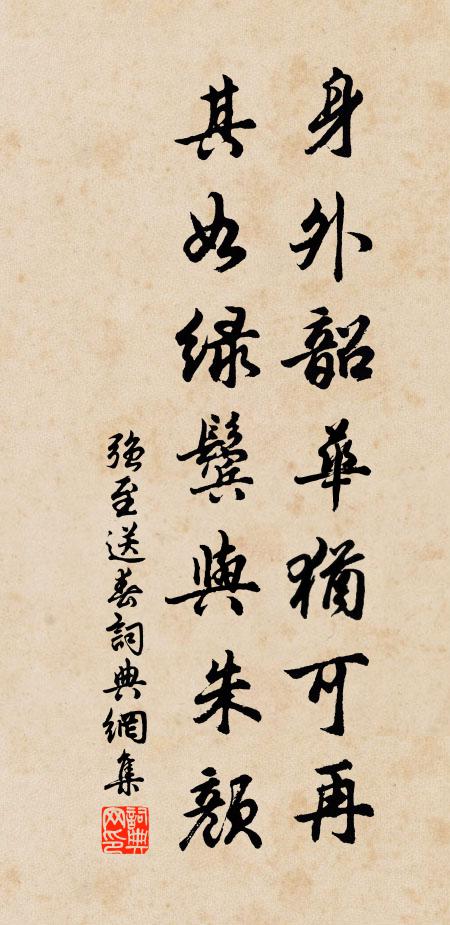 身外韶華猶可再
其如绿鬢與朱顏
强至送春詞典網集
詞典網印